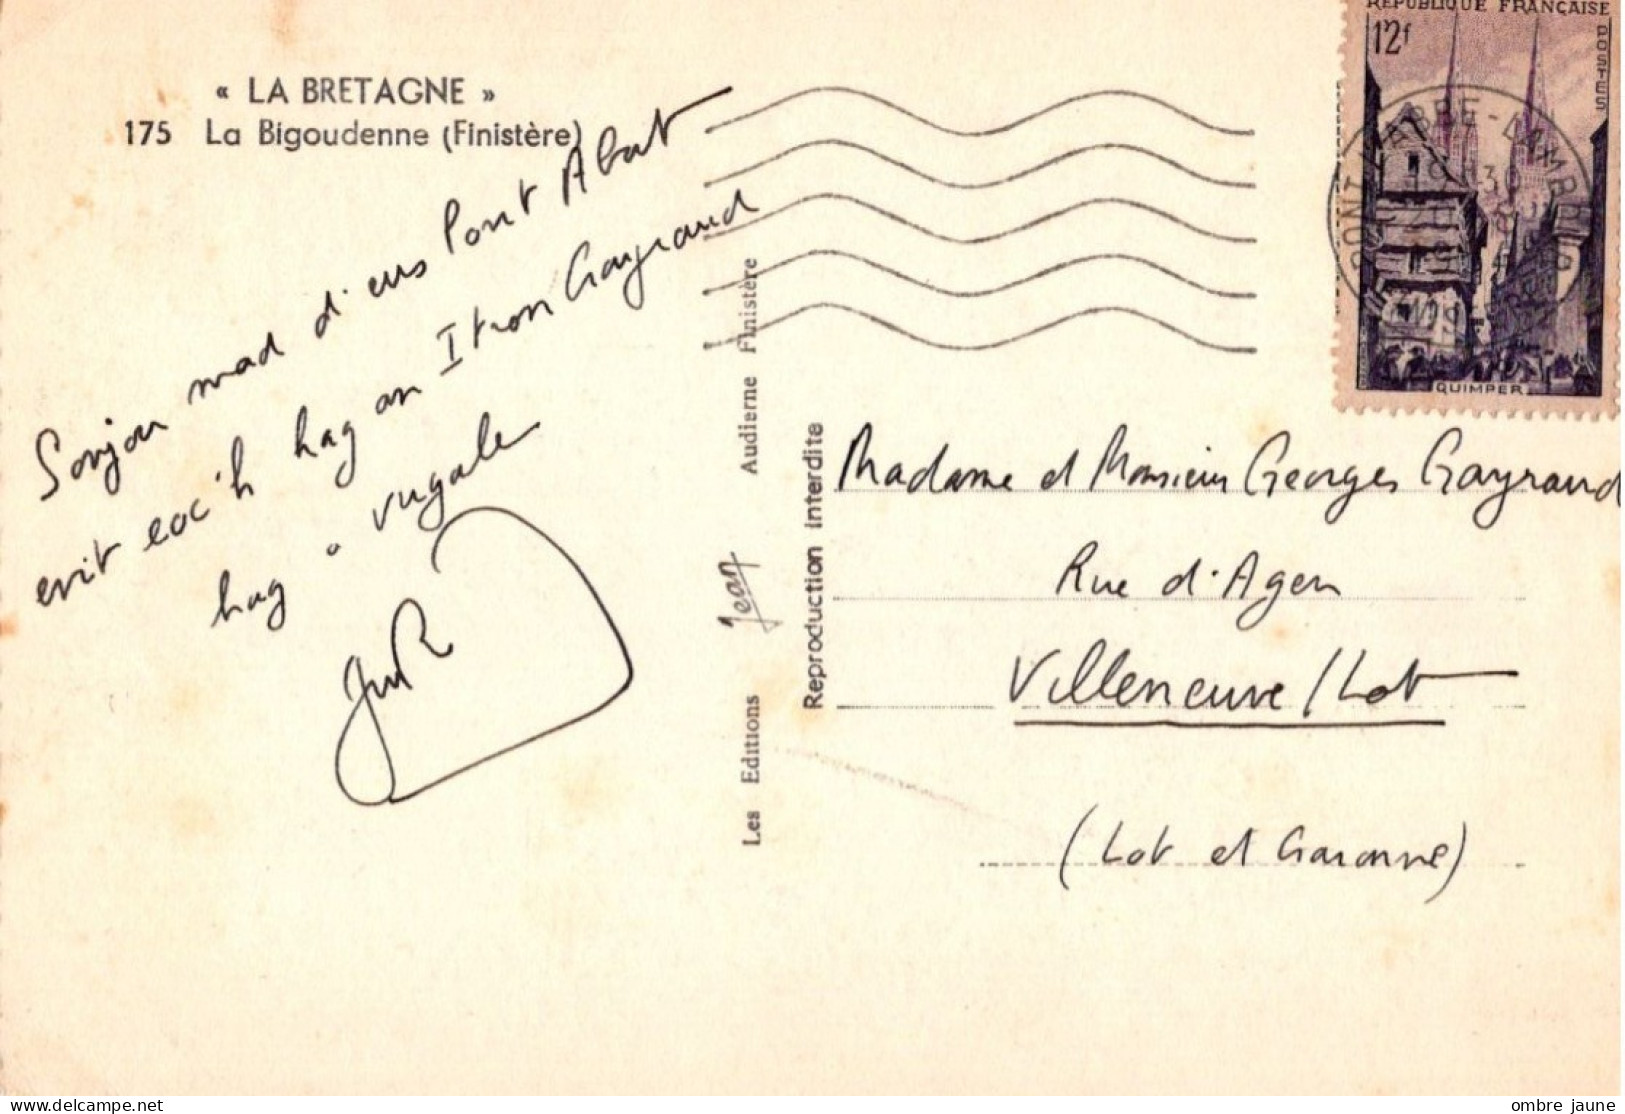 « LA BRETAGNE »
175 La Bigoudenne (Finistère)
Sonjou mad d'eus Pont Abat
evit eoc'h hag an Itron Gayraud
hag o vugale
Les Editions Jean Audierne Finistère
Reproduction Interdite
REPUBLIQUE FRANÇAISE
12f
POSTES
QUIMPER
PONT-L'ABBE-LAMBOUR
FINISTERE
Madame et Monsieur Georges Gayraud
Rue d'Agen
Villeneuve / Lot
(Lot et Garonne)
ombre jaune